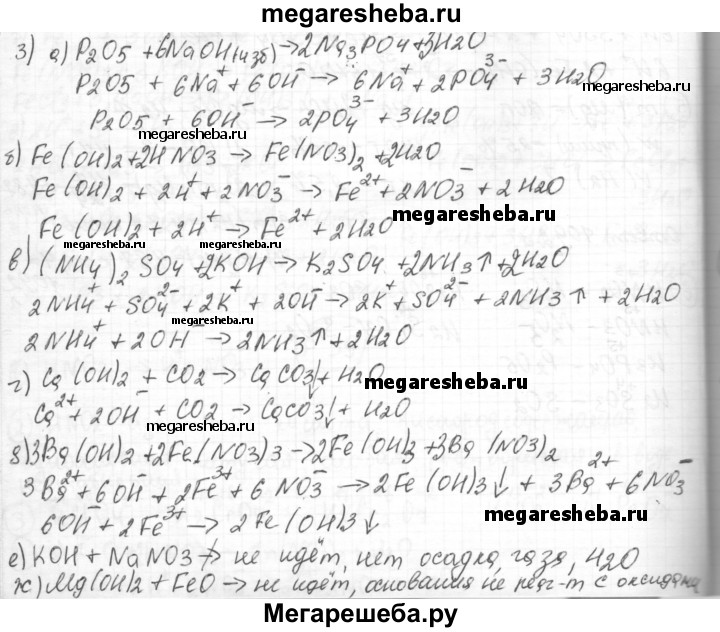 megaresheba.ru
3) а) P2O5 + 6NaOH(изб) → 2Na3PO4 + 3H2O
P2O5 + 6Na⁺ + 6OH⁻ → 6Na⁺ + 2PO4³⁻ + 3H2O
P2O5 + 6OH⁻ → 2PO4³⁻ + 3H2O
megaresheba.ru megaresheba.ru
б) Fe(OH)2 + 2HNO3 → Fe(NO3)2 + 2H2O
Fe(OH)2 + 2H⁺ + 2NO3⁻ → Fe²⁺ + 2NO3⁻ + 2H2O
megaresheba.ru
Fe(OH)2 + 2H⁺ → Fe²⁺ + 2H2O
megaresheba.ru megaresheba.ru
в) (NH4)2SO4 + 2KOH → K2SO4 + 2NH3↑ + 2H2O
2NH4⁺ + SO4²⁻ + 2K⁺ + 2OH⁻ → 2K⁺ + SO4²⁻ + 2NH3↑ + 2H2O
megaresheba.ru
2NH4⁺ + 2OH⁻ → 2NH3↑ + 2H2O
г) Ca(OH)2 + CO2 → CaCO3↓ + H2O
megaresheba.ru
Ca²⁺ + 2OH⁻ + CO2 → CaCO3↓ + H2O
д) 3Ba(OH)2 + 2Fe(NO3)3 → 2Fe(OH)3 + 3Ba(NO3)2
3Ba²⁺ + 6OH⁻ + 2Fe³⁺ + 6NO3⁻ → 2Fe(OH)3↓ + 3Ba²⁺ + 6NO3⁻
6OH⁻ + 2Fe³⁺ → 2Fe(OH)3↓
megaresheba.ru
е) KOH + NaNO3 ↛ не идёт, нет осадка, газа, H2O
ж) Mg(OH)2 + FeO → не идёт, основания не реаг-т с оксидами
Мегарешеба.ру